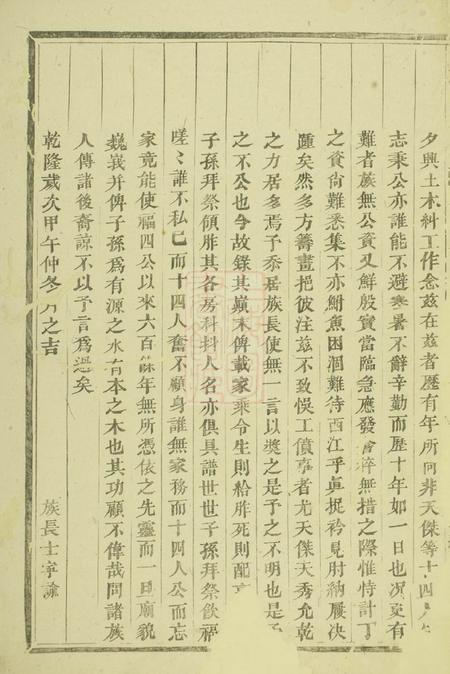 夕興土木糾工作念茲在茲者歷有年所向非天傑等十四人
志秉公亦誰能不避寒暑不辭辛勤而歷十年如一日也况更有
難者蔟無公資又鮮殷實當臨急應發倉猝無措之際惟恃計丁
之資尙難悉集不亦鮒魚困涸難待西江乎眞捉衿見肘納屨决
踵矣然多方籌畫挹彼注茲不致悞工僨事者尤天傑天秀允乾
之力居多焉予忝居族長使無一言以獎之是予之不明也是予
之不公也今故錄其巔末俾載家乘令生則給胙死則配享
子孫拜祭領胙其各房科抖人名亦俱具譜世世子孫拜祭飲福
嗟〻誰不私己而十四人奮不顧身誰無家務而十四人公而忘
家竟能使福四公以來六百餘年無所憑依之先靈而一旦廟貌
巍峩并俾子孫爲有源之水有本之木也其功顧不偉哉問諸族
人傳諸後裔諒不以予言爲慿矣
乾隆歲次甲午仲冬月之吉
族長士宇諭